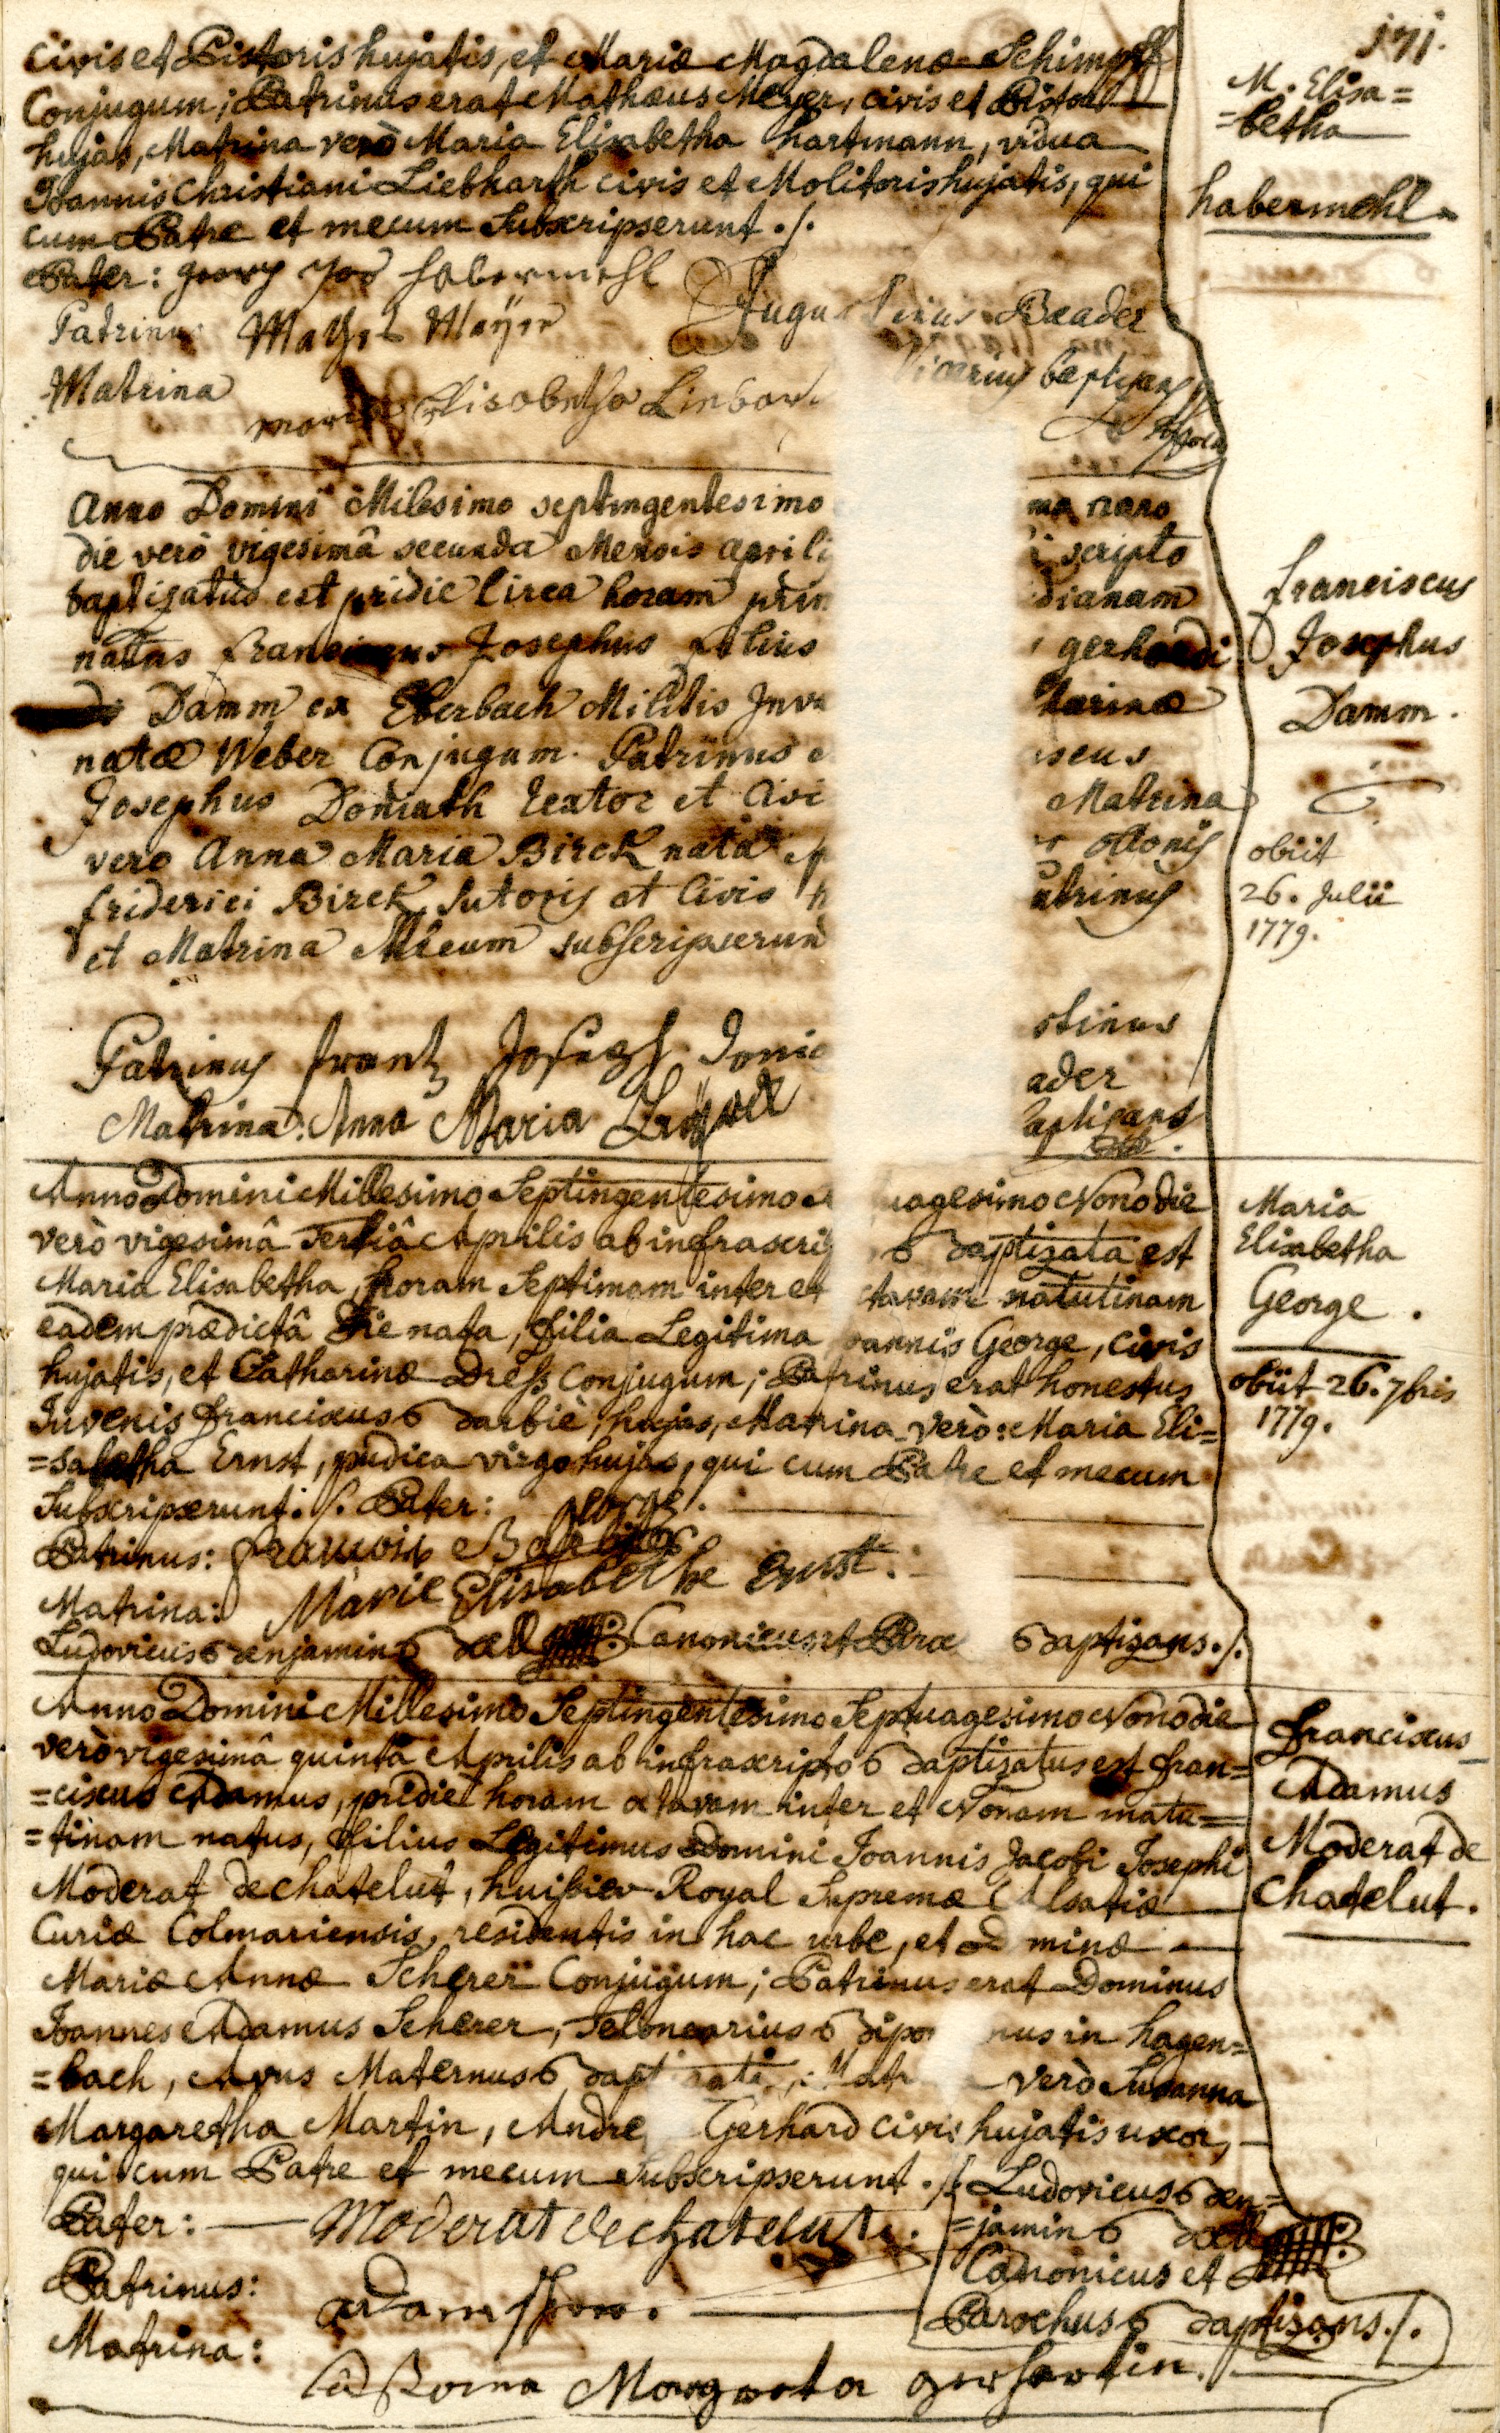 171.
civis et Pistoris hujatis, et Mariæ Magdalenæ Schimpff
Conjugum; Patrinus erat Mathæus Meyer, civis et Pistor
hujas, Matrina verò Maria Elisabetha hartmann, vidua
Joannis Christiani Liebharth civis et Molitoris hujatis, qui
cum Patre et mecum Subscripserunt ./.
M. Elisa=
=betha
habermehl
Pater: habermehl
Patrinus
Matrina
maria Elisabetha
Baader
baptizans
Anno Domini Milesimo septingentesimo
die verò vigesimâ secunda Mensis aprili
scripto
baptizatus est pridie circa horam prim
dianam
natus franciscus Josephus filius
gerhardi
Damm ex Eberbach Militis Inva
tarinæ
natæ Weber Conjugum. Patrinus e
iscus
Josephus Doniath textor et Civi
Matrina
vero Anna Maria Birck nata
friderici Birck, Sutoris et Civis h
atrinus
et Matrina Mecum subscripserun
franciscus
Josephus
Damm.
obiit
26. Julii
1779.
Patrinus frantz Joseph Donia
Matrina: Anna Maria
stinus
ader
aptizans
Anno Domini Millesimo Septingentesimo S uagesimo Nono die
verò vigesimâ Tertiâ Aprilis ab infrascrip o baptizata est
Maria Elisabetha, horam Septimam inter et ctavam matutinam
eadem prædictâ die nata, filia Legitima oannis George, civis
hujatis, et Catharinæ Dress conjugum; Patrinus erat honestus
Juvenis franciscus barbiè, hujas, Matrina verò: Maria Eli=
=sabetha Ernst, pudica virgo hujas, qui cum Patre et mecum
Subscripserunt. ./. Pater: george.
Patrinus: françois
Matrina: Marie Elisabethe Ernst.
Ludovicus benjamin Canonicus et Paro baptizans ./.
Maria
Elisabetha
George.
obiit 26. 7bris
1779.
Anno Domini Millesimo Septingentesimo Septuagesimo Nono die
verò vigesimâ quintâ Aprilis ab infrascripto baptizatus est fran=
=ciscus Adamus, pridie horam octavam inter et Nonam matu=
=tinam natus, filius Legitimus Domini Joannis Jacobi Josephi
Moderat de chatelut, huissier Royal Supremæ Alsatiæ
Curiæ Colmariensis, residentis in hac urbe, et d minæ
Mariæ Annæ Scherer Conjugum; Patrinus erat Dominus
Joannes Adamus Scherer, Telonearius bipon nus in hagen=
=bach, Avus Maternus bapti zati; Matr verò Susanna
Margaretha Martin, Andre Gerhard civis hujatis uxor,
qui cum Patre et mecum Subscripserunt ./.
franciscus
Adamus
Moderat de
chatelut.
Pater: Moderat de chatelut.
Patrinus: adam
Matrina:
Ludovicus ben=
=jamin
Canonicus et
Parochus baptizans ./.